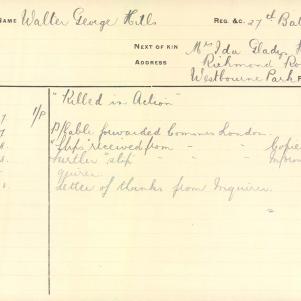 NAME Walter George Hills REG. &C. 27th Bat
NEXT OF KIN Mrs Ida Gladys H
ADDRESS Richmond Ro
Westbourne Park
"Killed in Action"
7 1/P
Cable forwarded Commrs London.
"Slips" received from " " Copie
Further "slip" " " "
quirer
Letter of thanks from Inquirer.